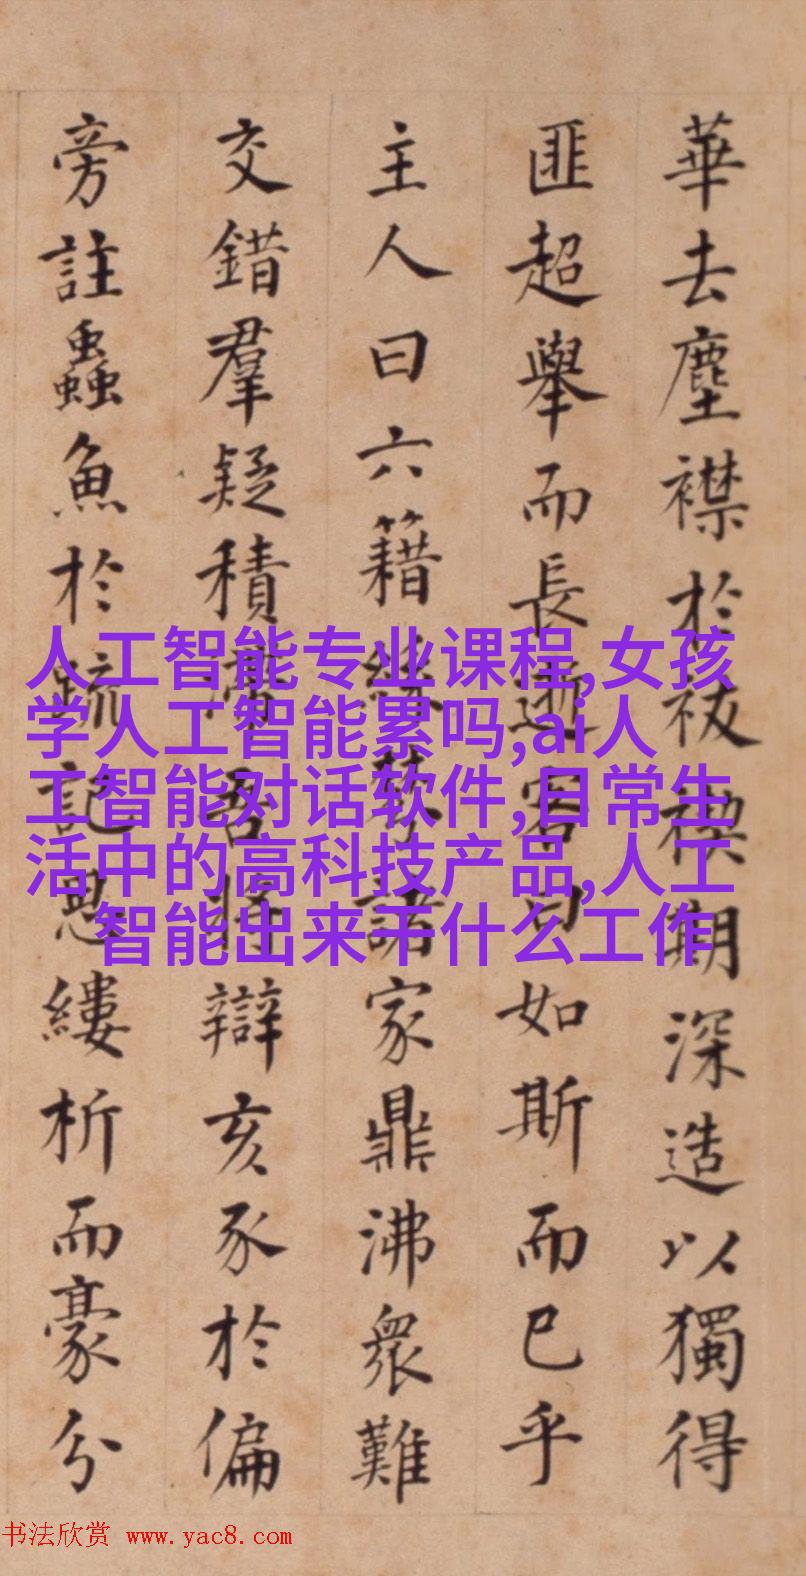 華去塵襟於祓禊期深造以獨得
匪超舉而長客曰如斯而已乎
主人曰六籍絲棼諸家鼎沸眾難
交錯羣疑積滯吾將辯亥豕於偏
旁註蟲魚於疏記思縷析而豪分
人工智能专业课程,女孩
学人工智能累吗,ai人
工智能对话软件,日常生
活中的高科技产品,人工
智能出来干什么工作
书法欣赏 www.yac8.com